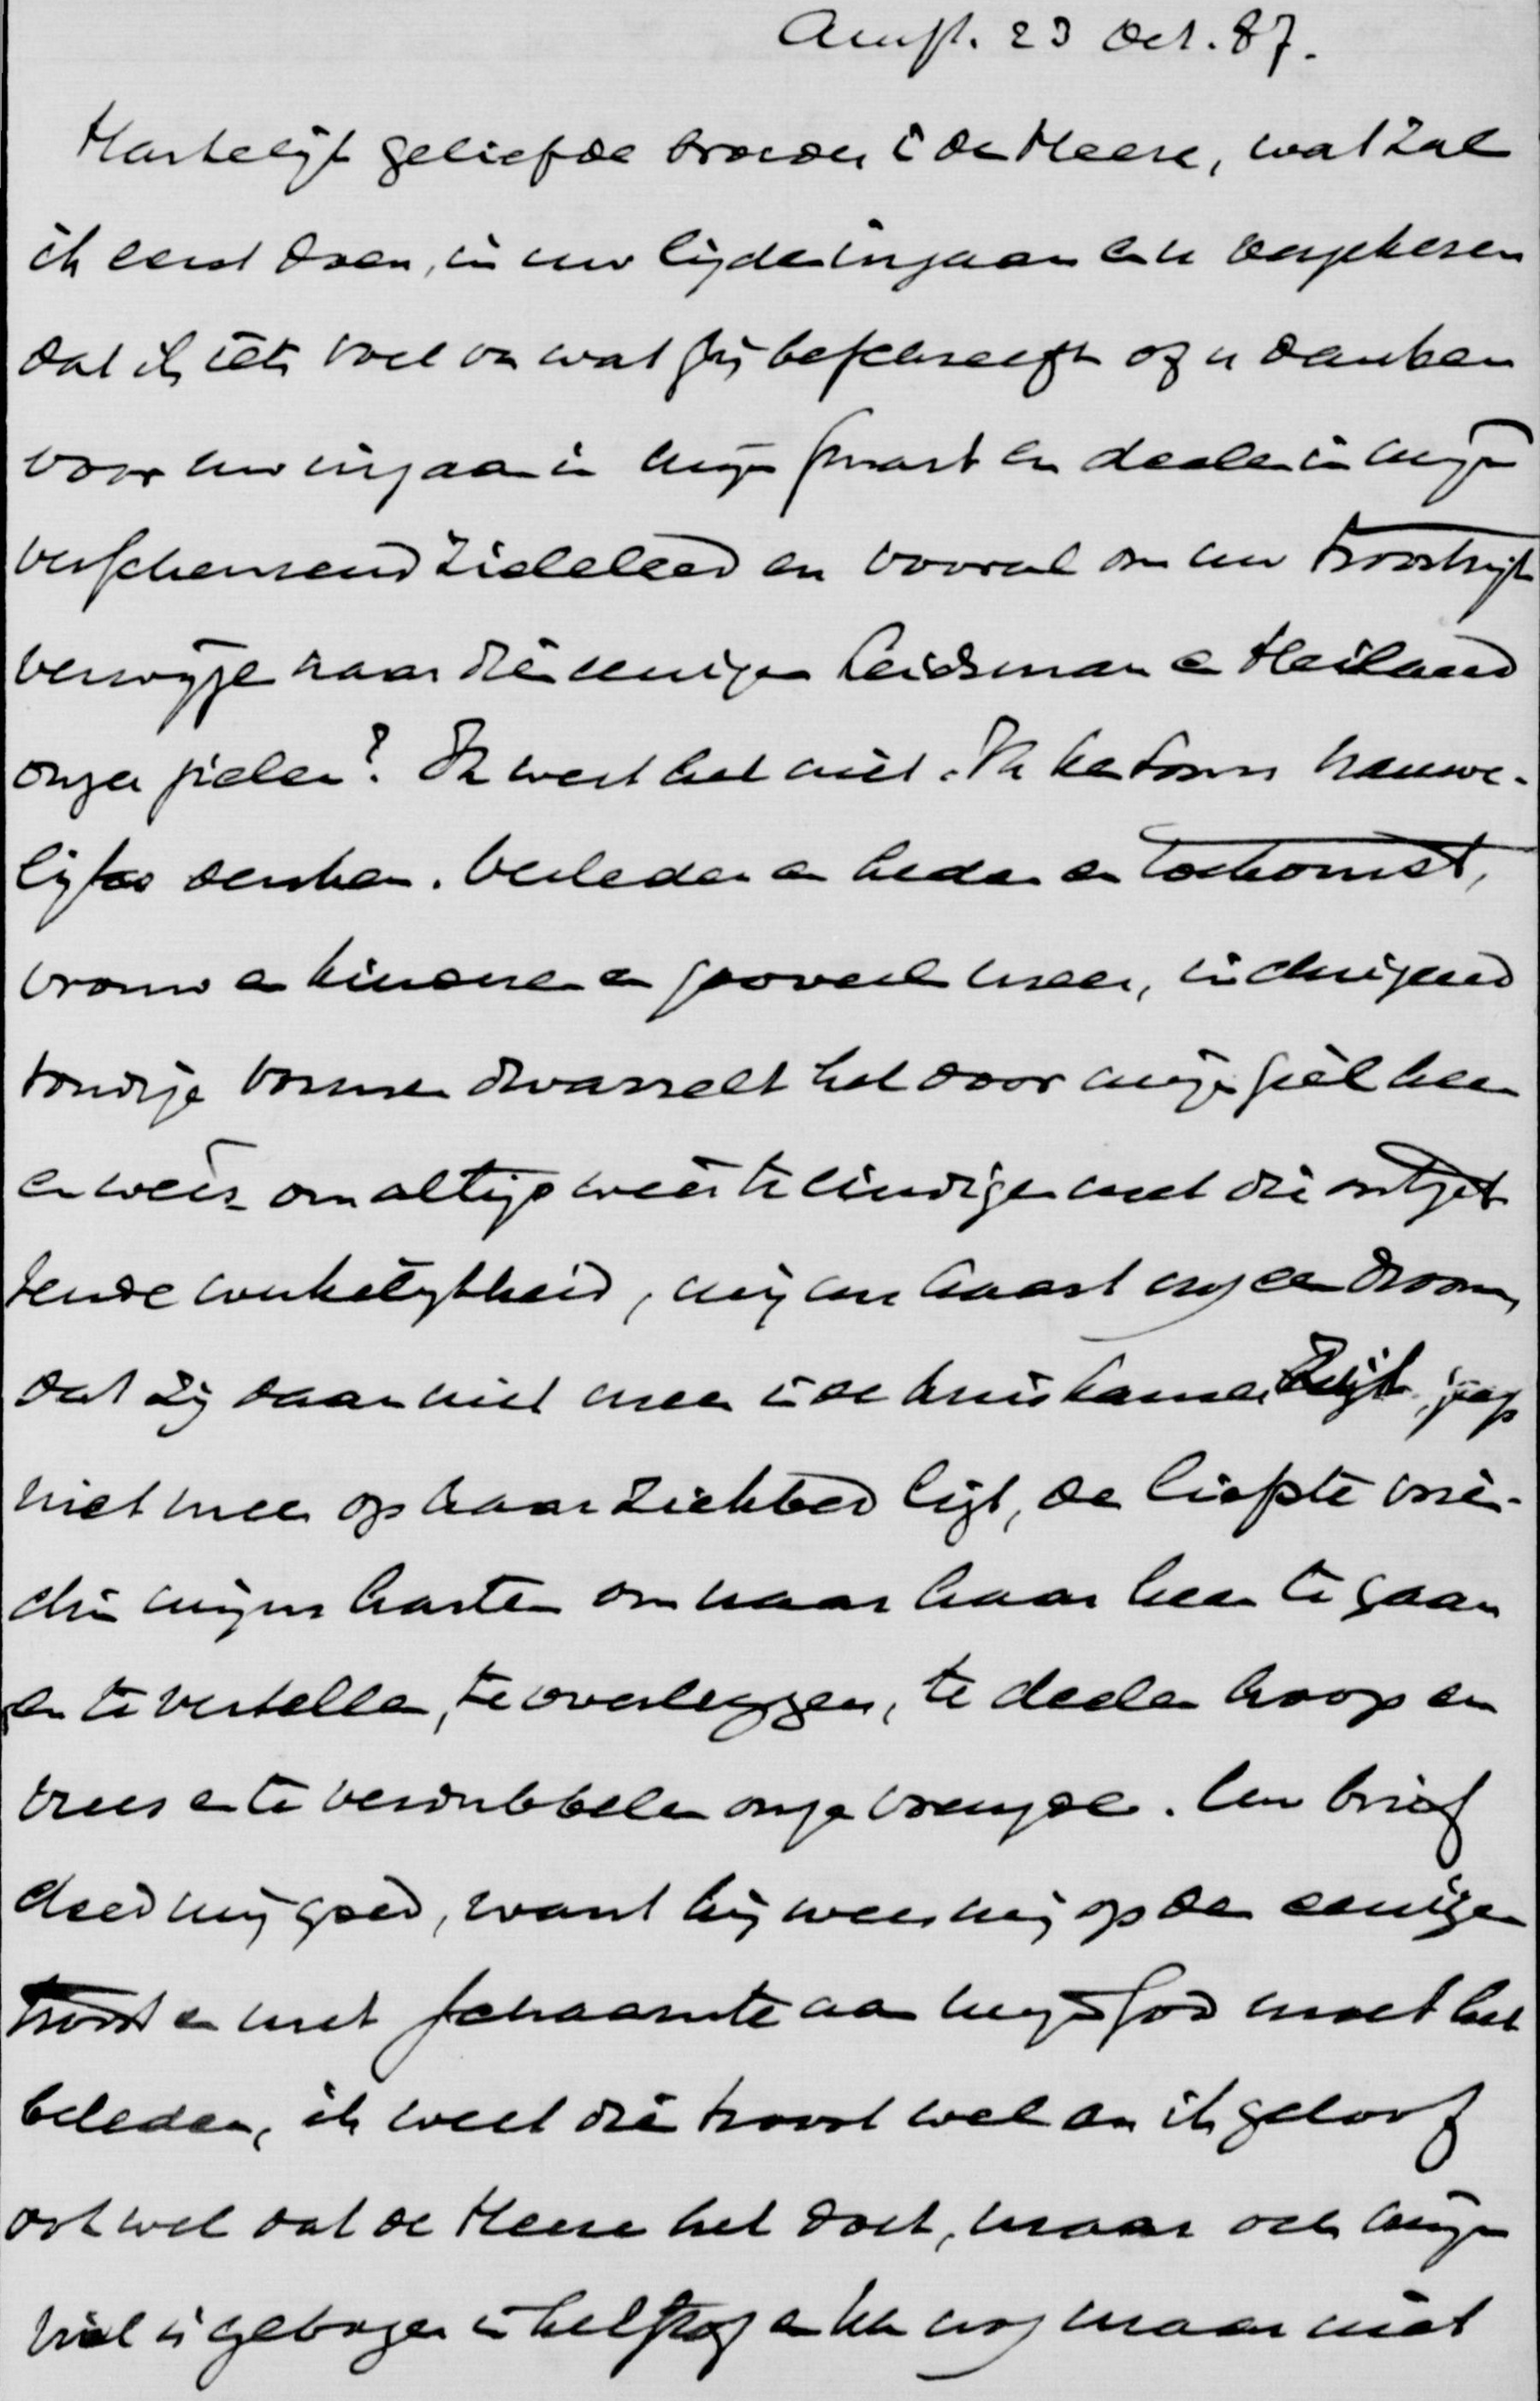 Amst. 23 Oct. 87.
Hartelijk geliefde broeder i de Heere, wat zal
ik eerst doen, in uw lijden ingaan en u verzekeren
dat ik iets voel van wat gij beschreeft of u danken
voor uw ingaan in mijn smart en deelen in mijn
verscheurend zieleleed en vooral om uw troostrijk
verwijzen naar die eenigen Leidsman en Heiland
onzer zielen? Ik weet het niet. Ik ka soms nauwe-
lijks denken. Verleden en heden en toekomst,
vrouw en kinderen en zooveel meer, in dreigend
vormen dwarrelt het door mijn ziel heen
en weer om altijd weer te eindigen met die ontzet
tende werkelijkheid, mij nu haast nog een droom,
dat zij daar niet meer i de huiskamer zit, ja
niet meer op haar ziekbed ligt, de liefste vrien-
din mijns harten om naar haar heen te gaan
en te vertellen, te overleggen, te deelen hoop en
vrees en te verdubbelen onze vreugde. Uw brief
deed mij goed, want hij wees mij op den eenigen
troost en met schaamte aan mijn God moet het
beleden, ik weet die troost wel en ik geloof
ook wel dat de Heere het doet, maar och mijn
ziel is gebogen in het stof en kan nog maar niet